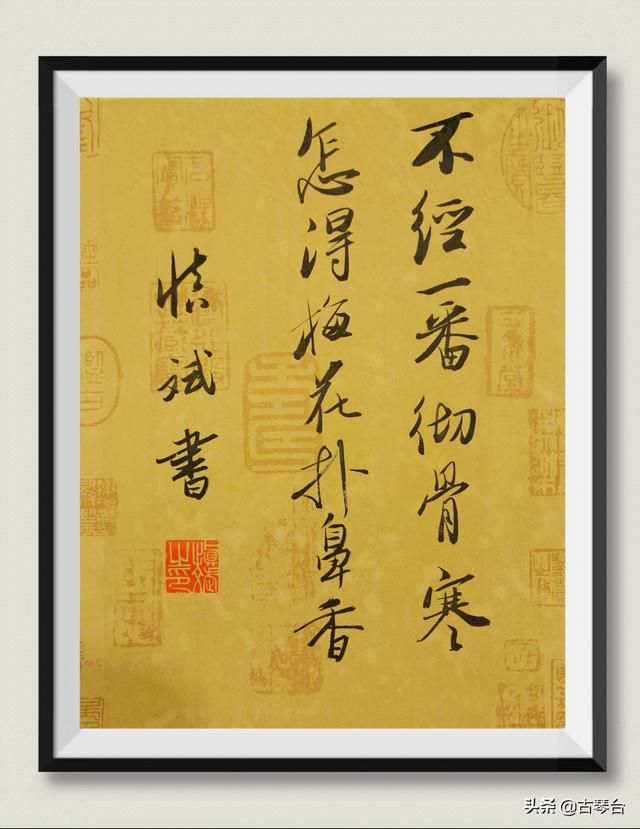 不經一番彻骨寒
怎得梅花扑鼻香
慎斌書
头条 @古琴台